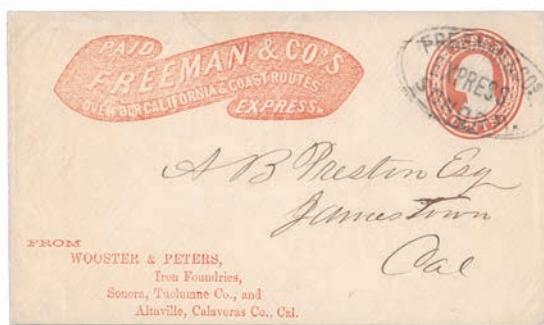 PAID
FREEMAN & CO'S
OVER OUR CALIFORNIA & COAST ROUTES
EXPRESS.
FREEMAN & CO'S
EXPRESS
A B Preston Esq
Jamestown
Cal
FROM
WOOSTER & PETERS,
Iron Foundries,
Sonora, Tuolumne Co., and
Altaville, Calaveras Co., Cal.